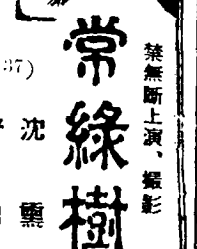 禁無斷上演、撮影
常綠樹
37)
沈
熏